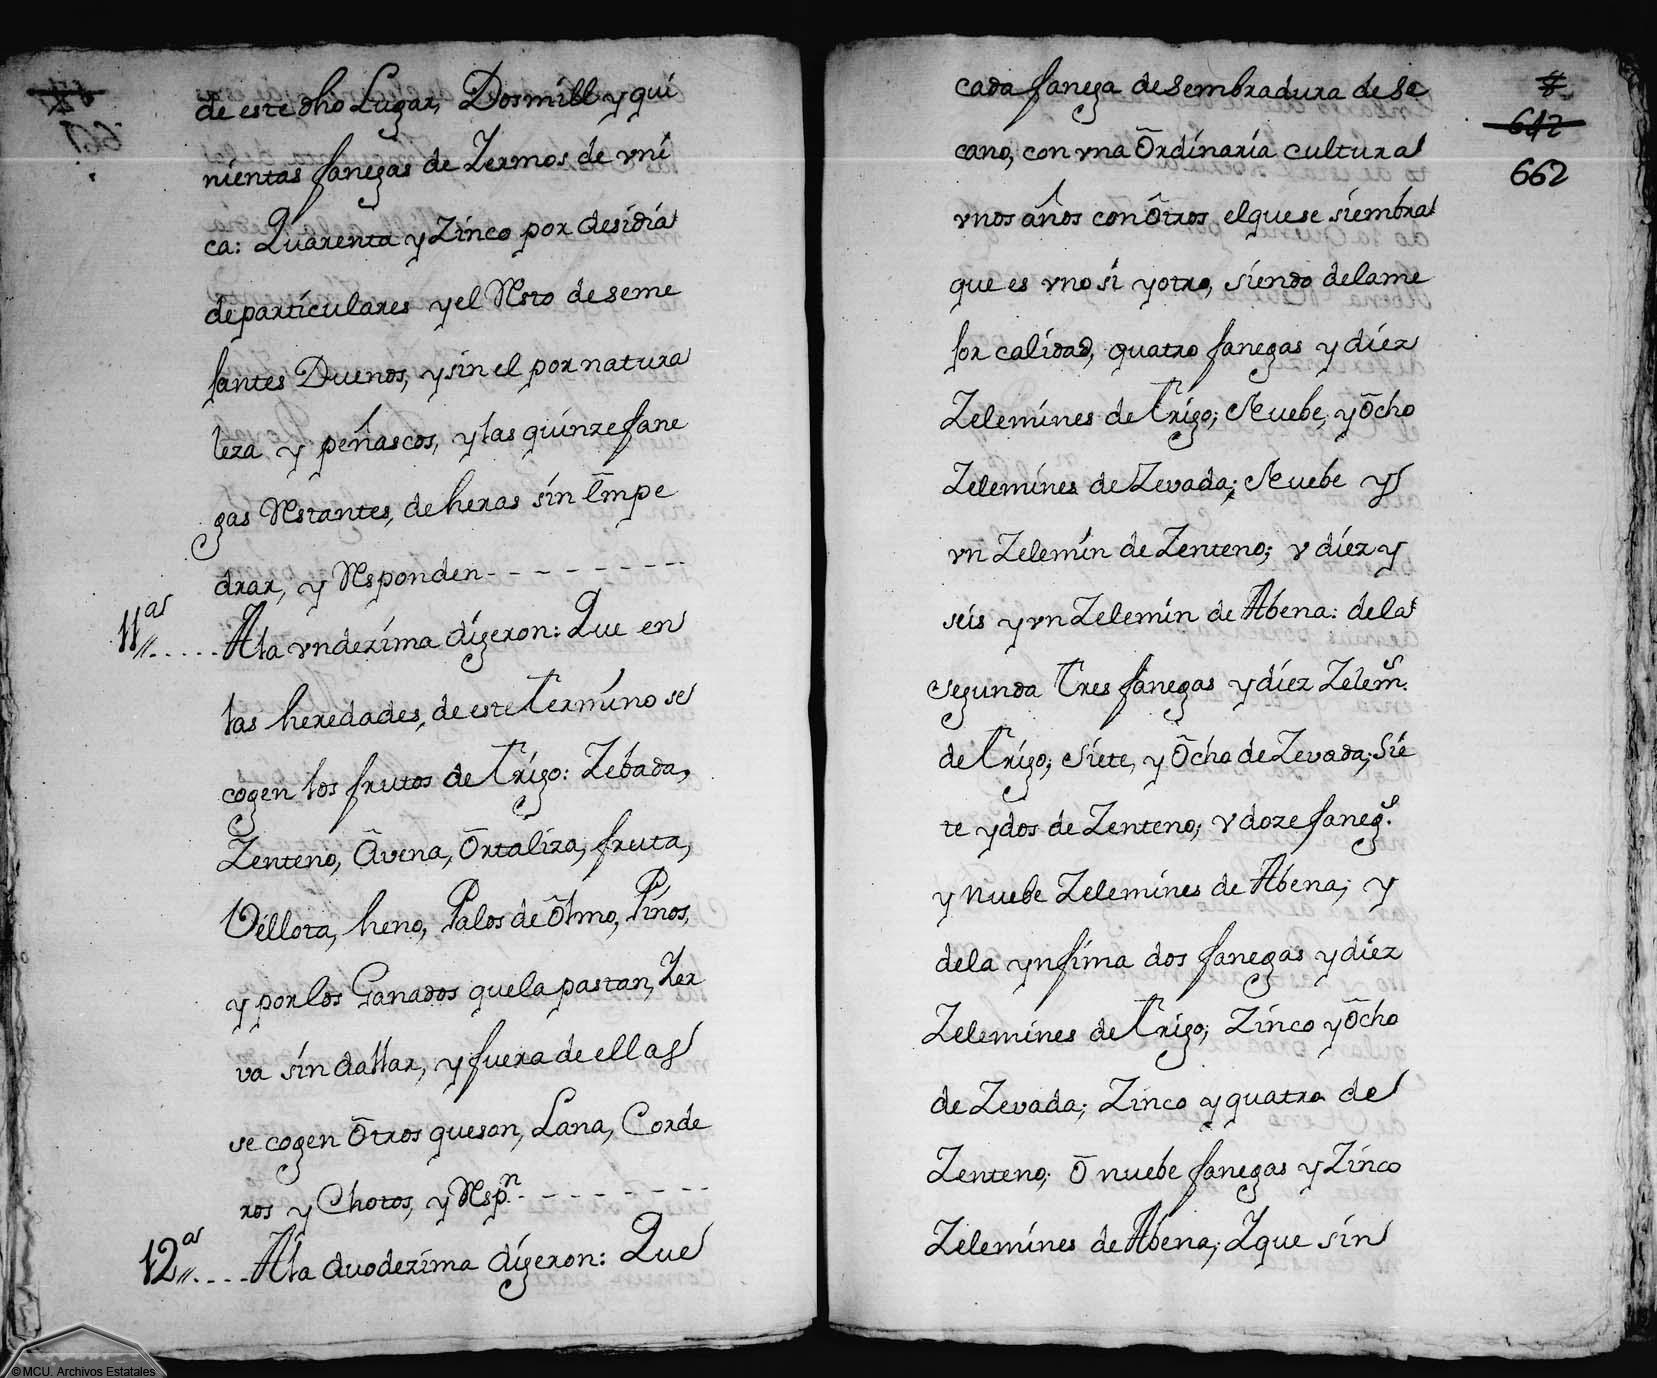 de este dho Lugar, Dosmill y qui
nientas fanegas de Zermos de vni
ca: Quarenta y Zinco por desidia
departiculares y el Rsto de seme
jantes Duenos, y sin el por natura
leza y peñascos, y las quinze fane
gas Rstantes, de heras sin Empe
drar, y Rsponden
11as
A la vndezima digeron: Que en
las heredades, de este Termino se
cogen los frutos de Trigo: Zebada,
Zenteno, Avena, Ortaliza, fruta,
Vellota, heno, Palos de Olmo, Pinos,
y por los Ganados que la pastan, Yer
va sin dallar, y fuera de ellas
se cogen Otros que son, Lana, Corde
ros y Chotos, y Rspn
12as
A la duodezima digeron: Que
cada fanega de sembradura de Se
cano, con vna Ordinaria cultura
vnos años con Otros, el que se siembra
que es vno si y otro, siendo de la me
jor calidad, quatro fanegas y diez
Zelemines de Trigo; Nuebe, y Ocho
Zelemines de Zevada; Nuebe y
vn Zelemin de Zenteno; y diez y
seis y vn Zelemin de Abena: de la
segunda Tres fanegas y diez Zelems.
de Trigo; Siete, y Ocho de Zevada; Sie
te y dos de Zenteno; y doze fanegs.
y nuebe Zelemines de Abena; y
de la ynfima dos fanegas y diez
Zelemines de Trigo; Zinco y Ocho
de Zevada; Zinco y quatro de
Zenteno; O nuebe fanegas y Zinco
Zelemines de Abena; Y que sin
642
662
©MCU. Archivos Estatales